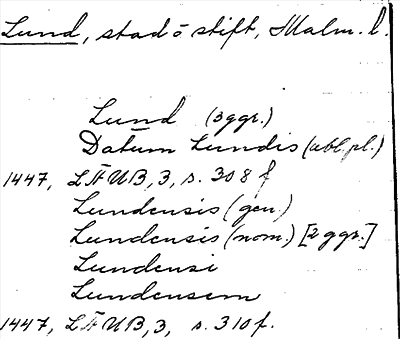 Lund, stad o stift, Malm. l.
Lund (3 ggr.)
Datum Lundis (abl. pl.)
1447, LÄUB, 3, s. 308 f
Lundensis (gen)
Lundensis (nom.) [2 ggr.]
Lundensi
Lundensem
1447, LÄUB, 3, s. 310 f.